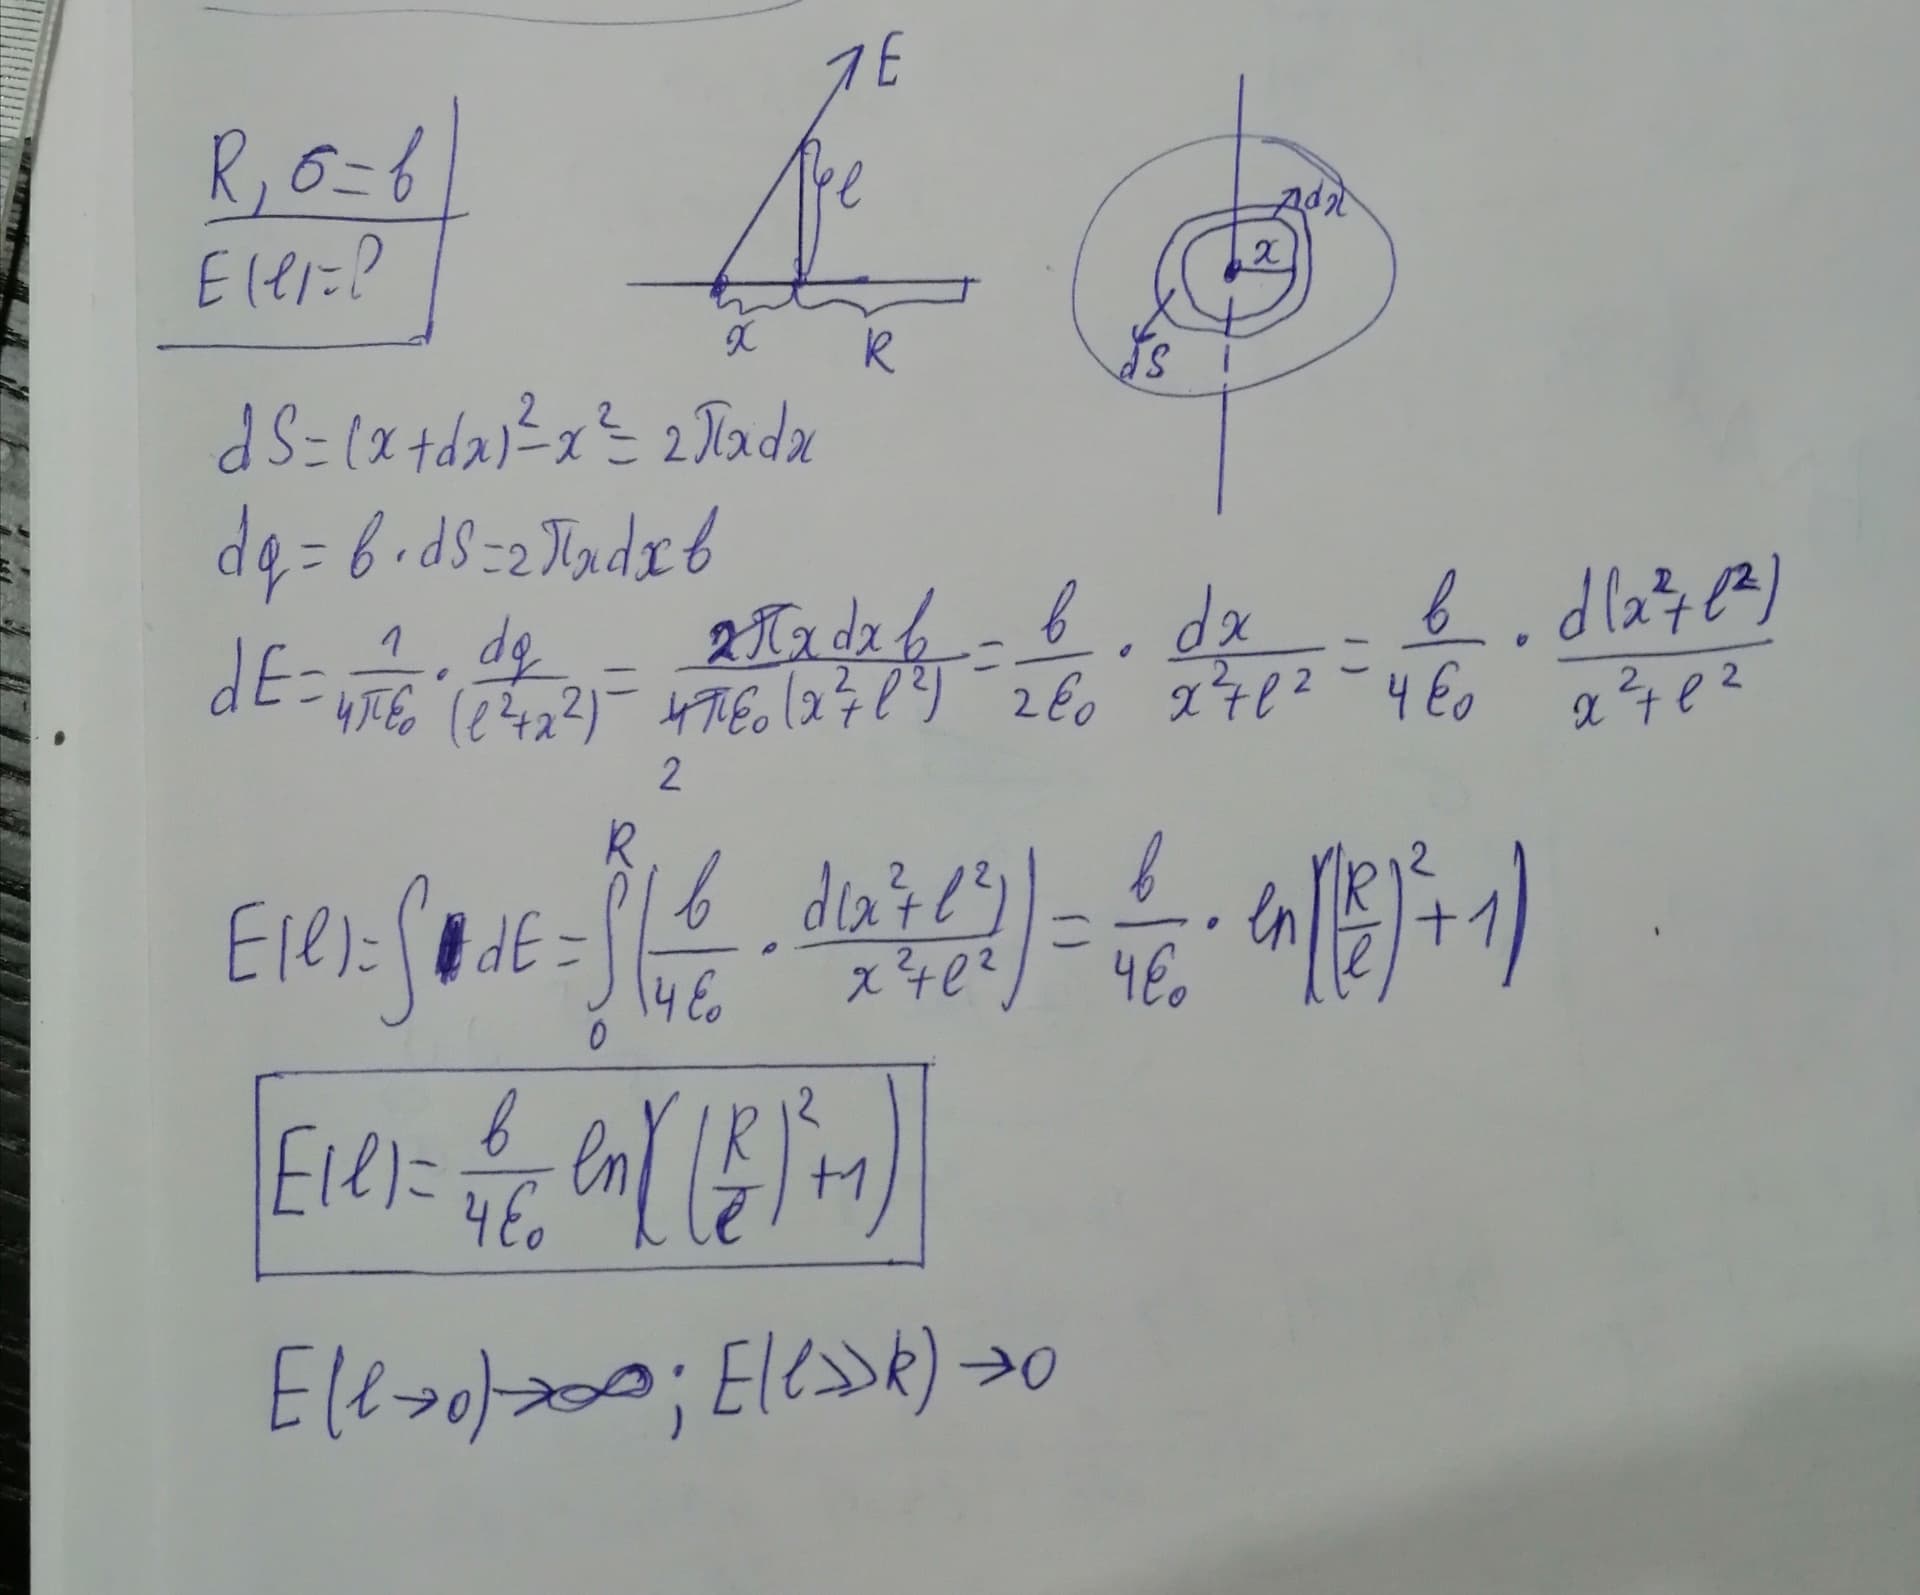 R, σ = б
E(l) = ?
E
l
x
R
dx
x
dS
dS = (x+dx)² - x² = 2πxdx
dq = б · dS = 2πxdxб
dE = 1/4πε₀ · dq/(l²+x²) = 2πxdxб/4πε₀(x²+l²) = б/2ε₀ · dx/x²+l² = б/4ε₀ · d(x²+l²)/x²+l²
2
E(l) = ∫ dE = ∫₀ᴿ (б/4ε₀ · d(x²+l²)/x²+l²) = б/4ε₀ · ln((R/l)²+1)
E(l) = б/4ε₀ ln((R/l)²+1)
E(l→0)→∞; E(l≫R)→0